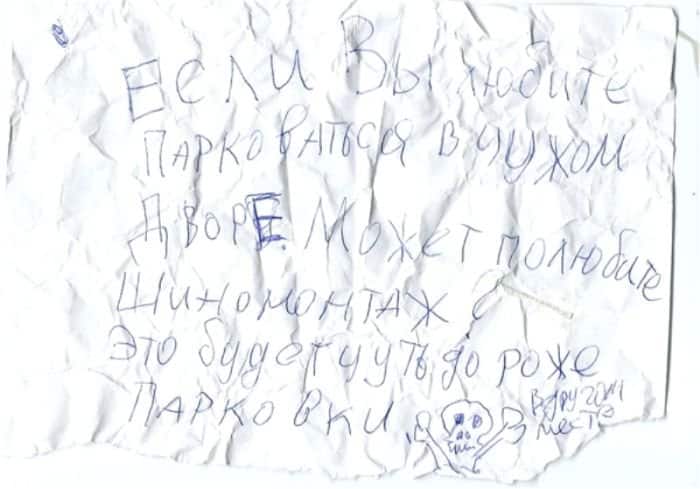 Если Вы любите
парковаться в чужом
дворе. Может полюбите
шиномонтаж?
Это будет чуть дороже
парковки
в другом
месте